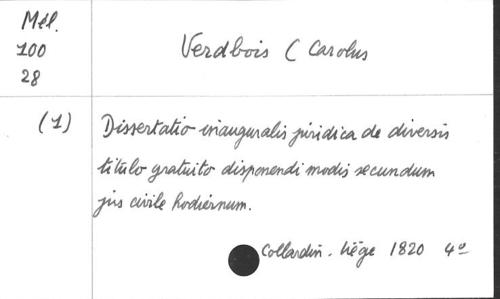 Mél.
100
28
Verdbois (Carolus
(1)
Dissertatio inauguralis juridica de diversis
titulo gratuito disponendi modis secundum
jus civile hodiernum.
Collardin. Liége 1820 4º